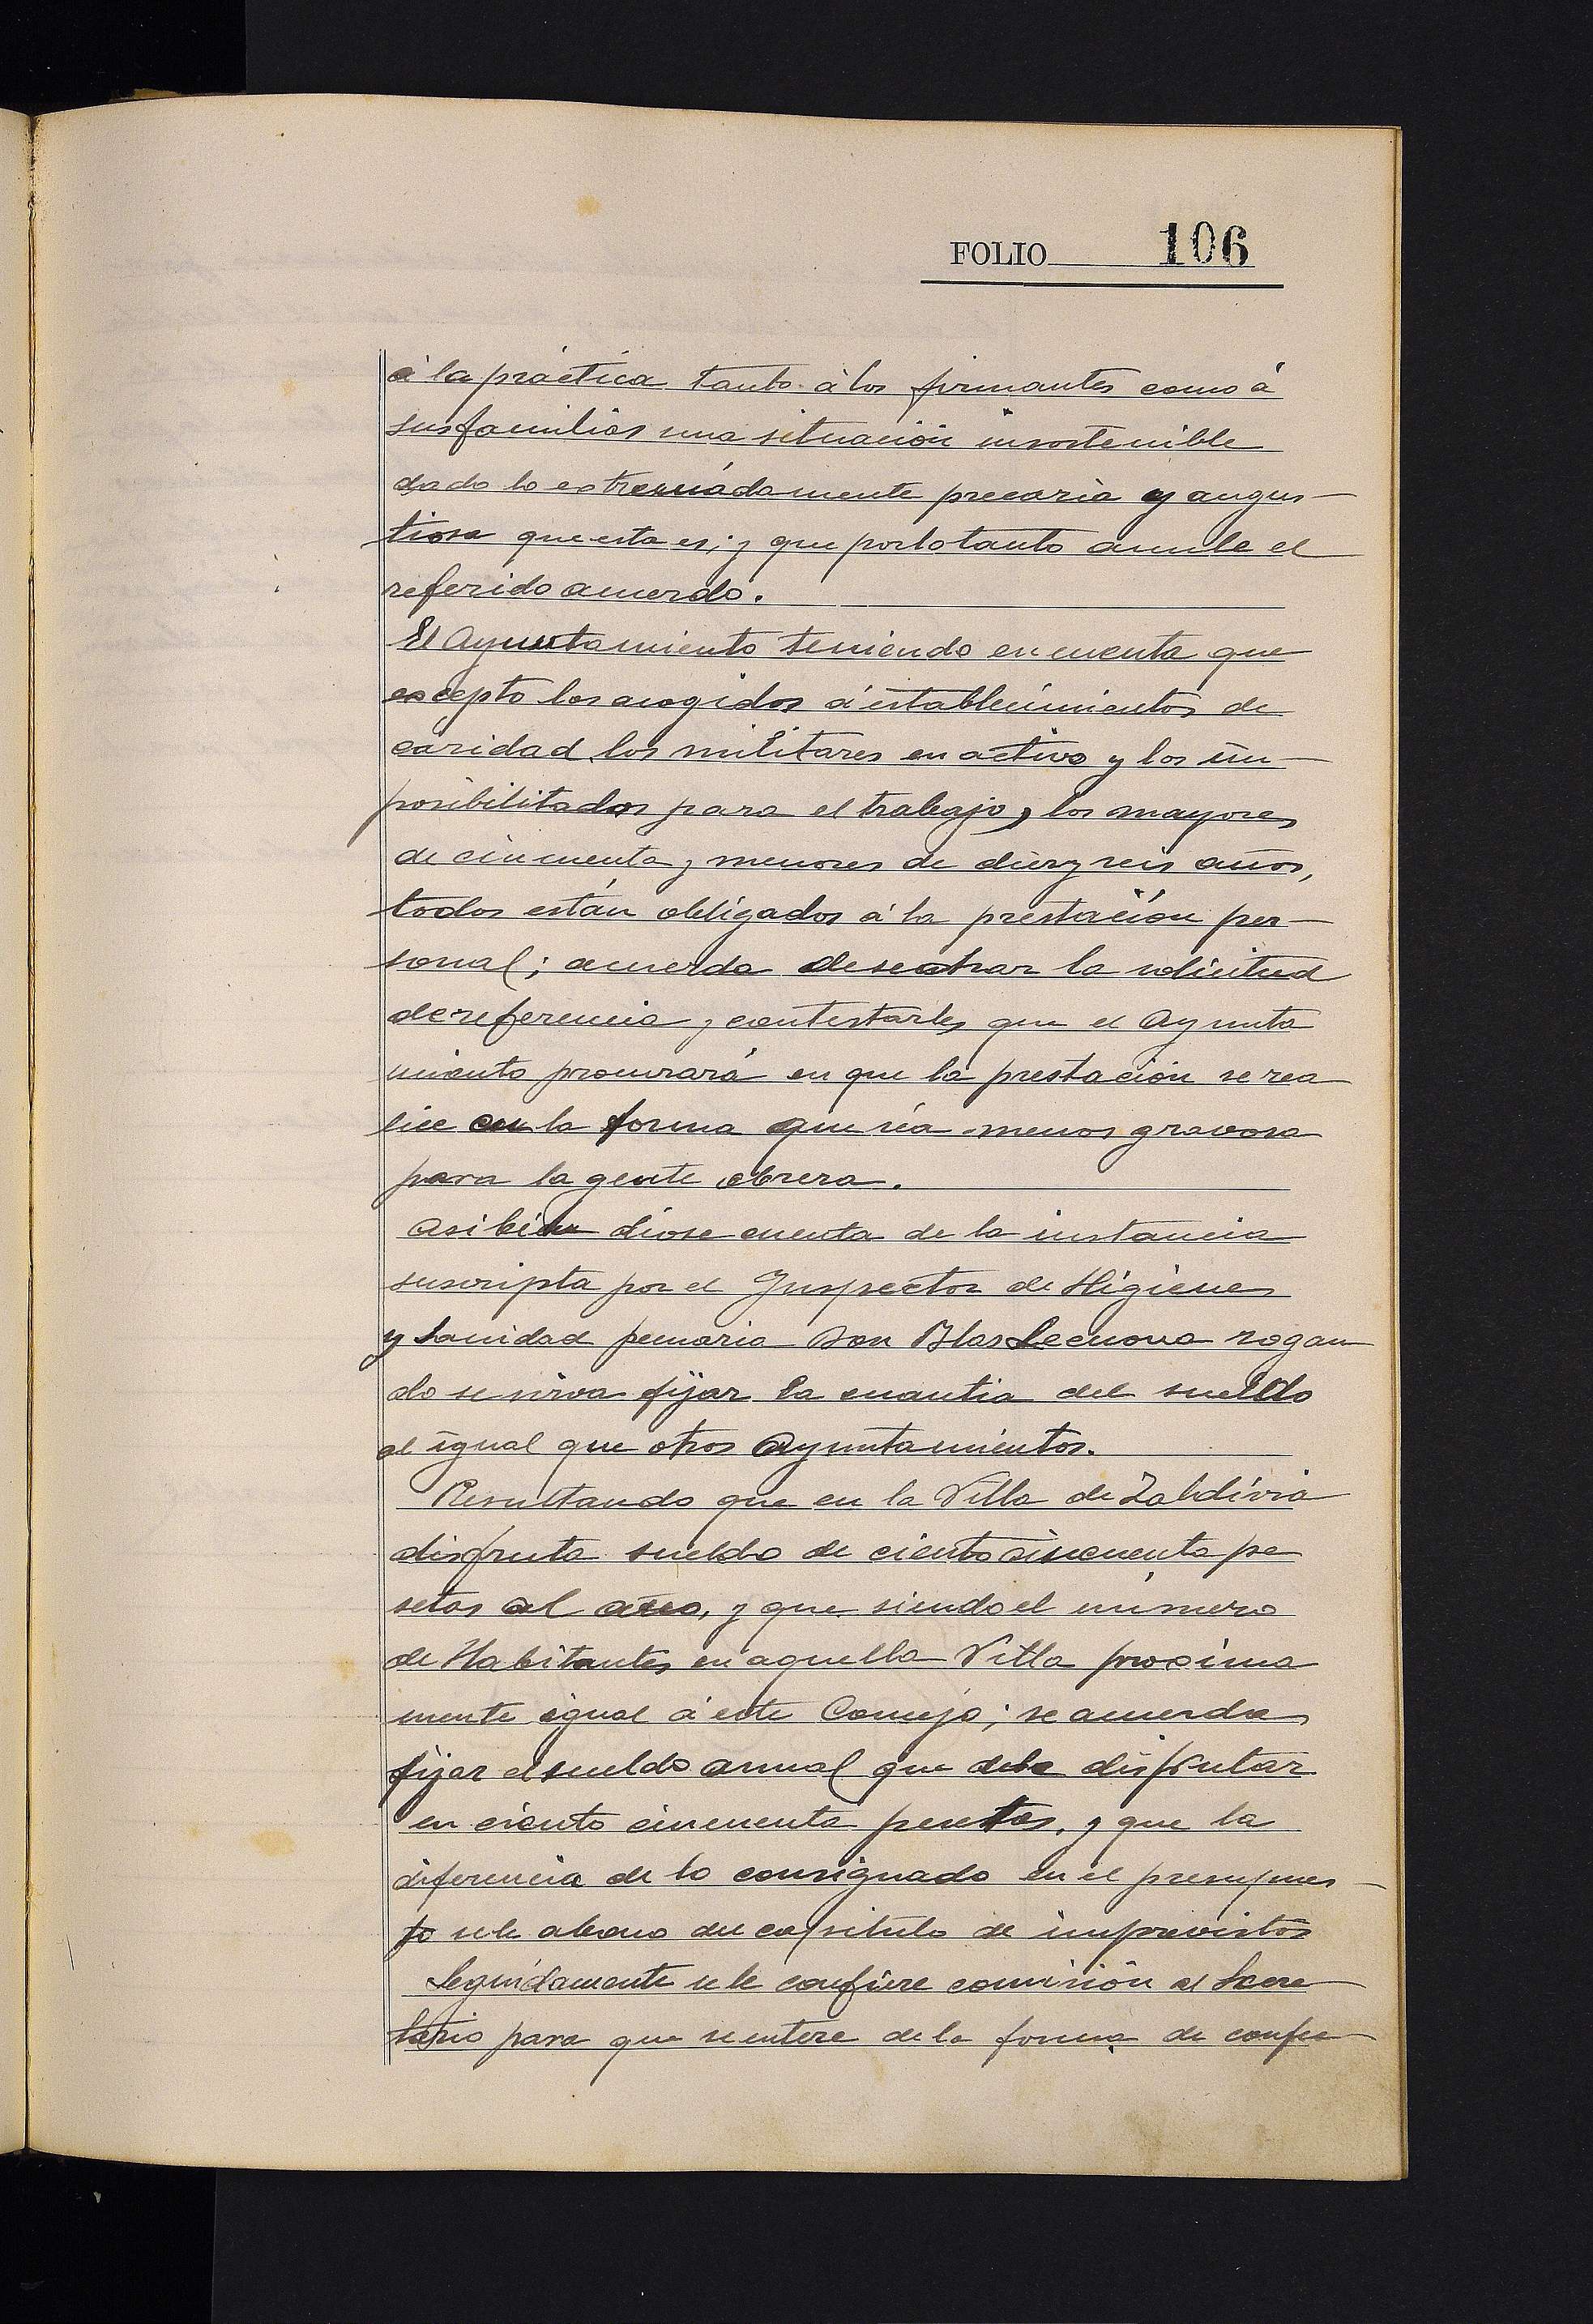 FOLIO 106
á la práctica tanto á los firmantes como á
sus familias una situación insostenible
dado lo extremádamente precaria y angus-
tiosa que esta es; y que por lo tanto anule el
referido acuerdo.
El Ayuntamiento teniendo en cuenta que
excepto los acogidos á establecimientos de
caridad, los militares en activo y los im-
posibilitados para el trabajo, los mayores
de cincuenta y menores de diez y seis años,
todos están obligados á la prestación per-
sonal; acuerda desestimar la solicitud
de referencia y contestarles que el Ayunta
miento procurará en que la prestación se rea
lice en la forma que séa menos gravosa
para la gente obrera.
Asi bien diose cuenta de la instancia
suscripta por el Inspector de Higiene
y Sanidad pecuaria Don Blas Lecuona rogan
do se sirva fijar la cuantia del sueldo
al igual que otros Ayuntamientos.
Resultando que en la Villa de Zaldivia
disfruta sueldo de ciento cincuenta pe
setas al año, y que siendo el número
de Habitantes en aquella Villa proxima
mente igual á este Concejo; se acuerda
fijar el sueldo anual que debe disfrutar
en ciento cincuenta pesetas, y que la
diferencia de lo consignado en el presupues-
to se le abone del capitulo de imprevistos
Seguidamente se le confiere comisión al Secre
tario para que se entere de la forma de confec